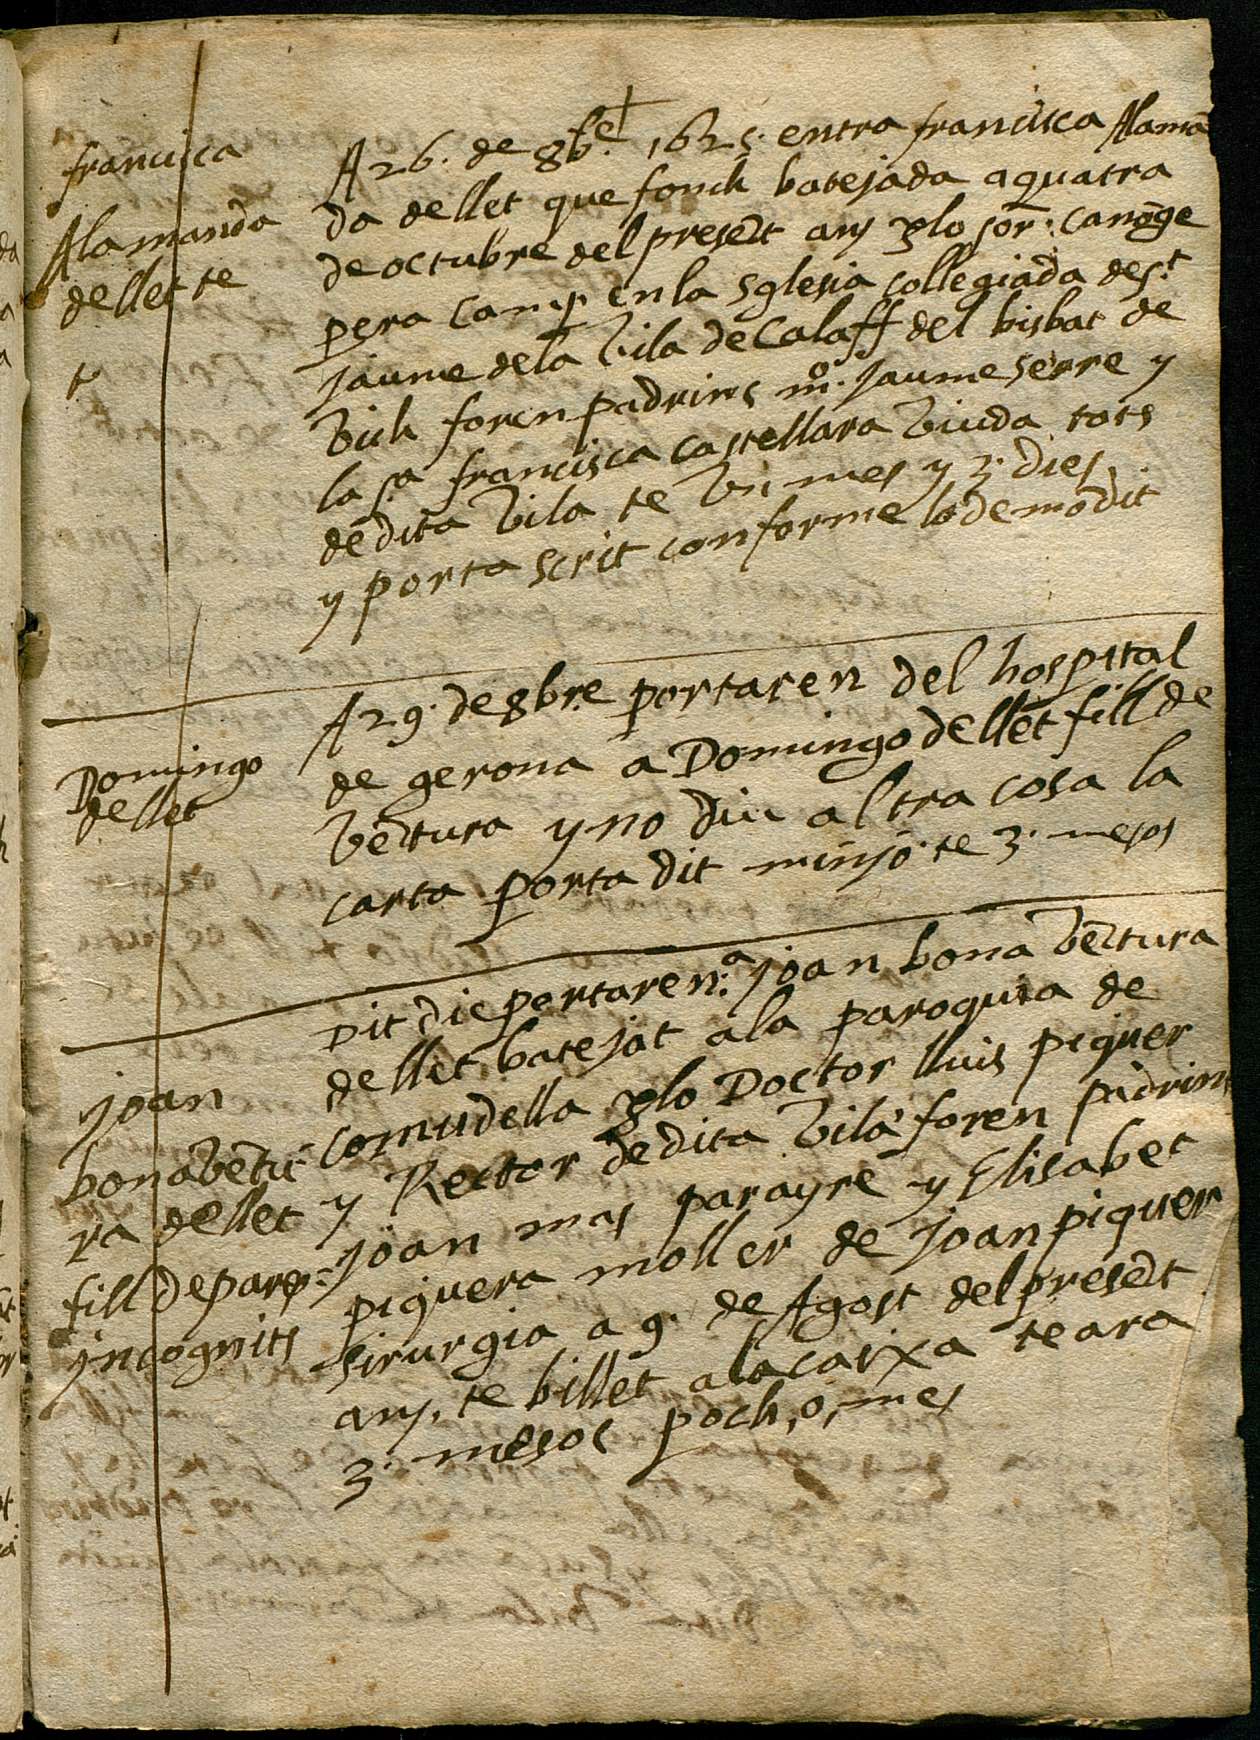 francisca
Alamanda
dellet te
t
A 26. de 8bre. 1625. entra francisca Alamā
da dellet que fonch batejada a quatra
de octubre del present any plo sōr. canōge
pera camp en la sglesia collegiada des.t
Jaume dela vila de Calaff del bisbat de
vich foren padrins mº. Jaume serre y
la sa francisca castellara viuda tots
de dita vila te vn mes y 3. dies
y porta scrit conforme lo demōdit
Domingo
dellet
A 29. de 8bre portaren del hospital
de gerona a Domingo dellet fill de
ventura y no diu altra cosa la
carta porta dit minjó. te 3. mesos
joan
bonaventu
ra dellet
fill de pares
yncognits
Dit die portaren.a joan bonaventura
dellet, batejat ala paroquia de
comudella plo Doctor lluis piquer
y Rector de dita vila foren padrins
joan mas parayre y Elisabet
piquera moller de joan piquer
sirurgia a 9. de Agost del present
any, te billet ala caixa te ara
3. mesos poch, o, mes